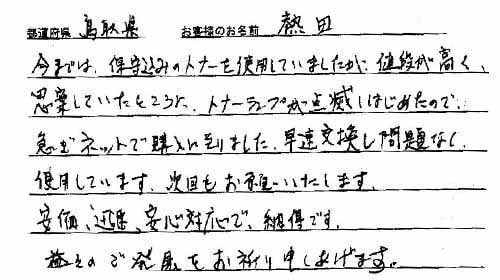 都道府県 鳥取県 お客様のお名前 熱田
今までは、保守込みのトナーを使用していましたが、値段が高く、
思案していたところに、トナーランプが点滅しはじめたので、
急ぎネットで購入に到りました。早速交換し問題なく、
使用しています。次回もお願いいたします。
安価、迅速、安心対応で、納得です。
益々のご発展をお祈り申しあげます。